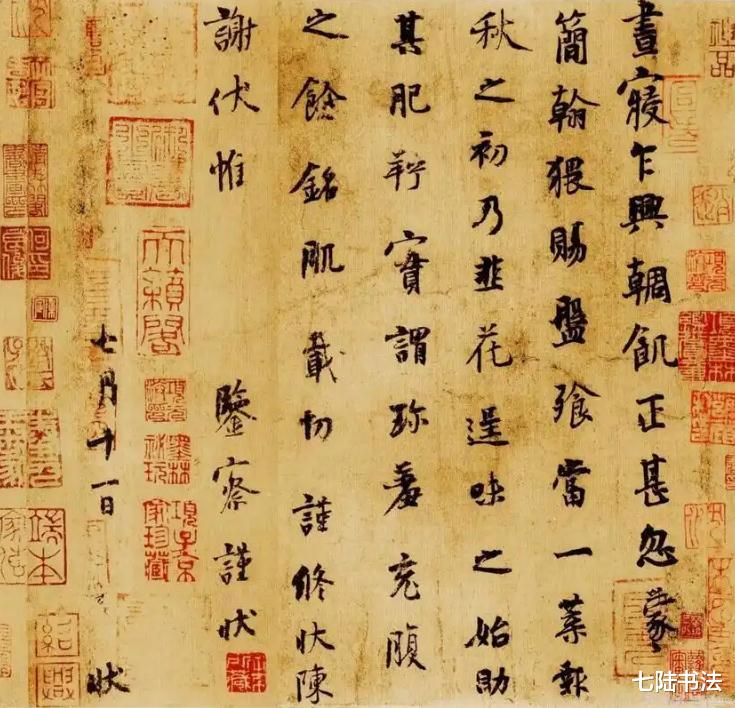 晝寢乍興輖飢正甚忽蒙
簡翰猥賜盤飧當一葉報
秋之初乃韭花逞味之始助
其肥羜實謂珍羞充腹
之餘銘肌載切謹修狀陳
謝伏惟 鑒察謹狀
七月十一日 狀
天籟閣
墨林秘玩
項子京家珍藏
七陆书法